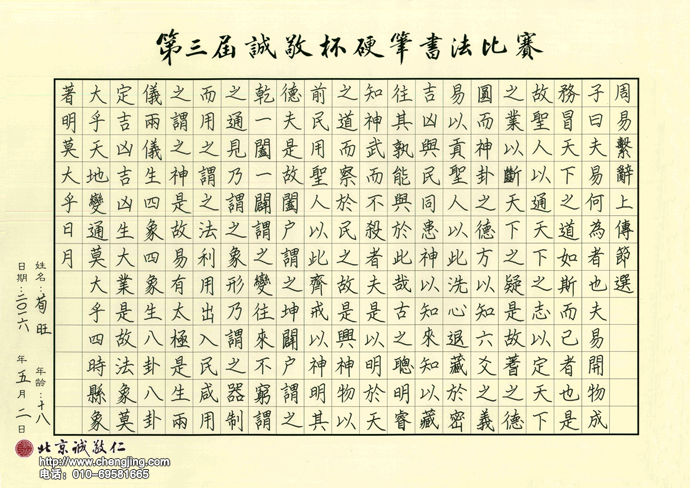 第三屆誠敬杯硬筆書法比賽
周易繫辭上傳節選
子曰夫易何為者也夫易開物成
務冒天下之道如斯而已者也是
故聖人以通天下之志以定天下
之業以斷天下之疑是故蓍之德
圓而神卦之德方以知六爻之義
易以貢聖人以此洗心退藏於密
吉凶與民同患神以知來知以藏
往其孰能與於此哉古之聰明睿
知神武而不殺者夫是以明於天
之道而察於民之故是興神物以
前民用聖人以此齊戒以神明其
德夫是故闔户謂之坤闢户謂之
乾一闔一闢謂之變往來不窮謂
之通見乃謂之象形乃謂之器制
而用之謂之法利用出入民咸用
之謂之神是故易有太極是生兩
儀兩儀生四象四象生八卦八卦
定吉凶吉凶生大業是故法象莫
大乎天地變通莫大乎四時縣象
著明莫大乎日月
姓名：荀旺 年龄：十八
日期：二〇一六年五月二日
北京誠敬仁
http://www.chengjing.com
电话：010-69581665